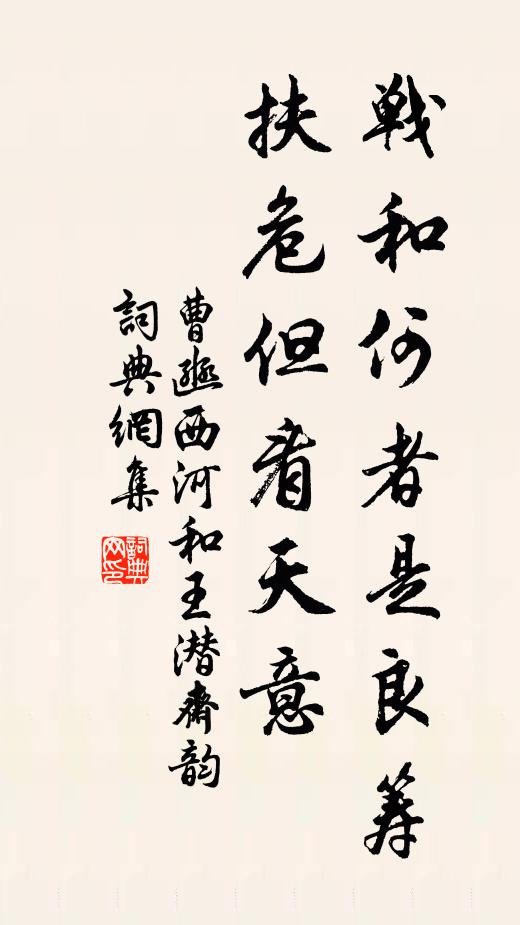 戰和何者是良筹
扶危但看天意
曹豳西河和王潜齋韵
詞典網集
詞典网印